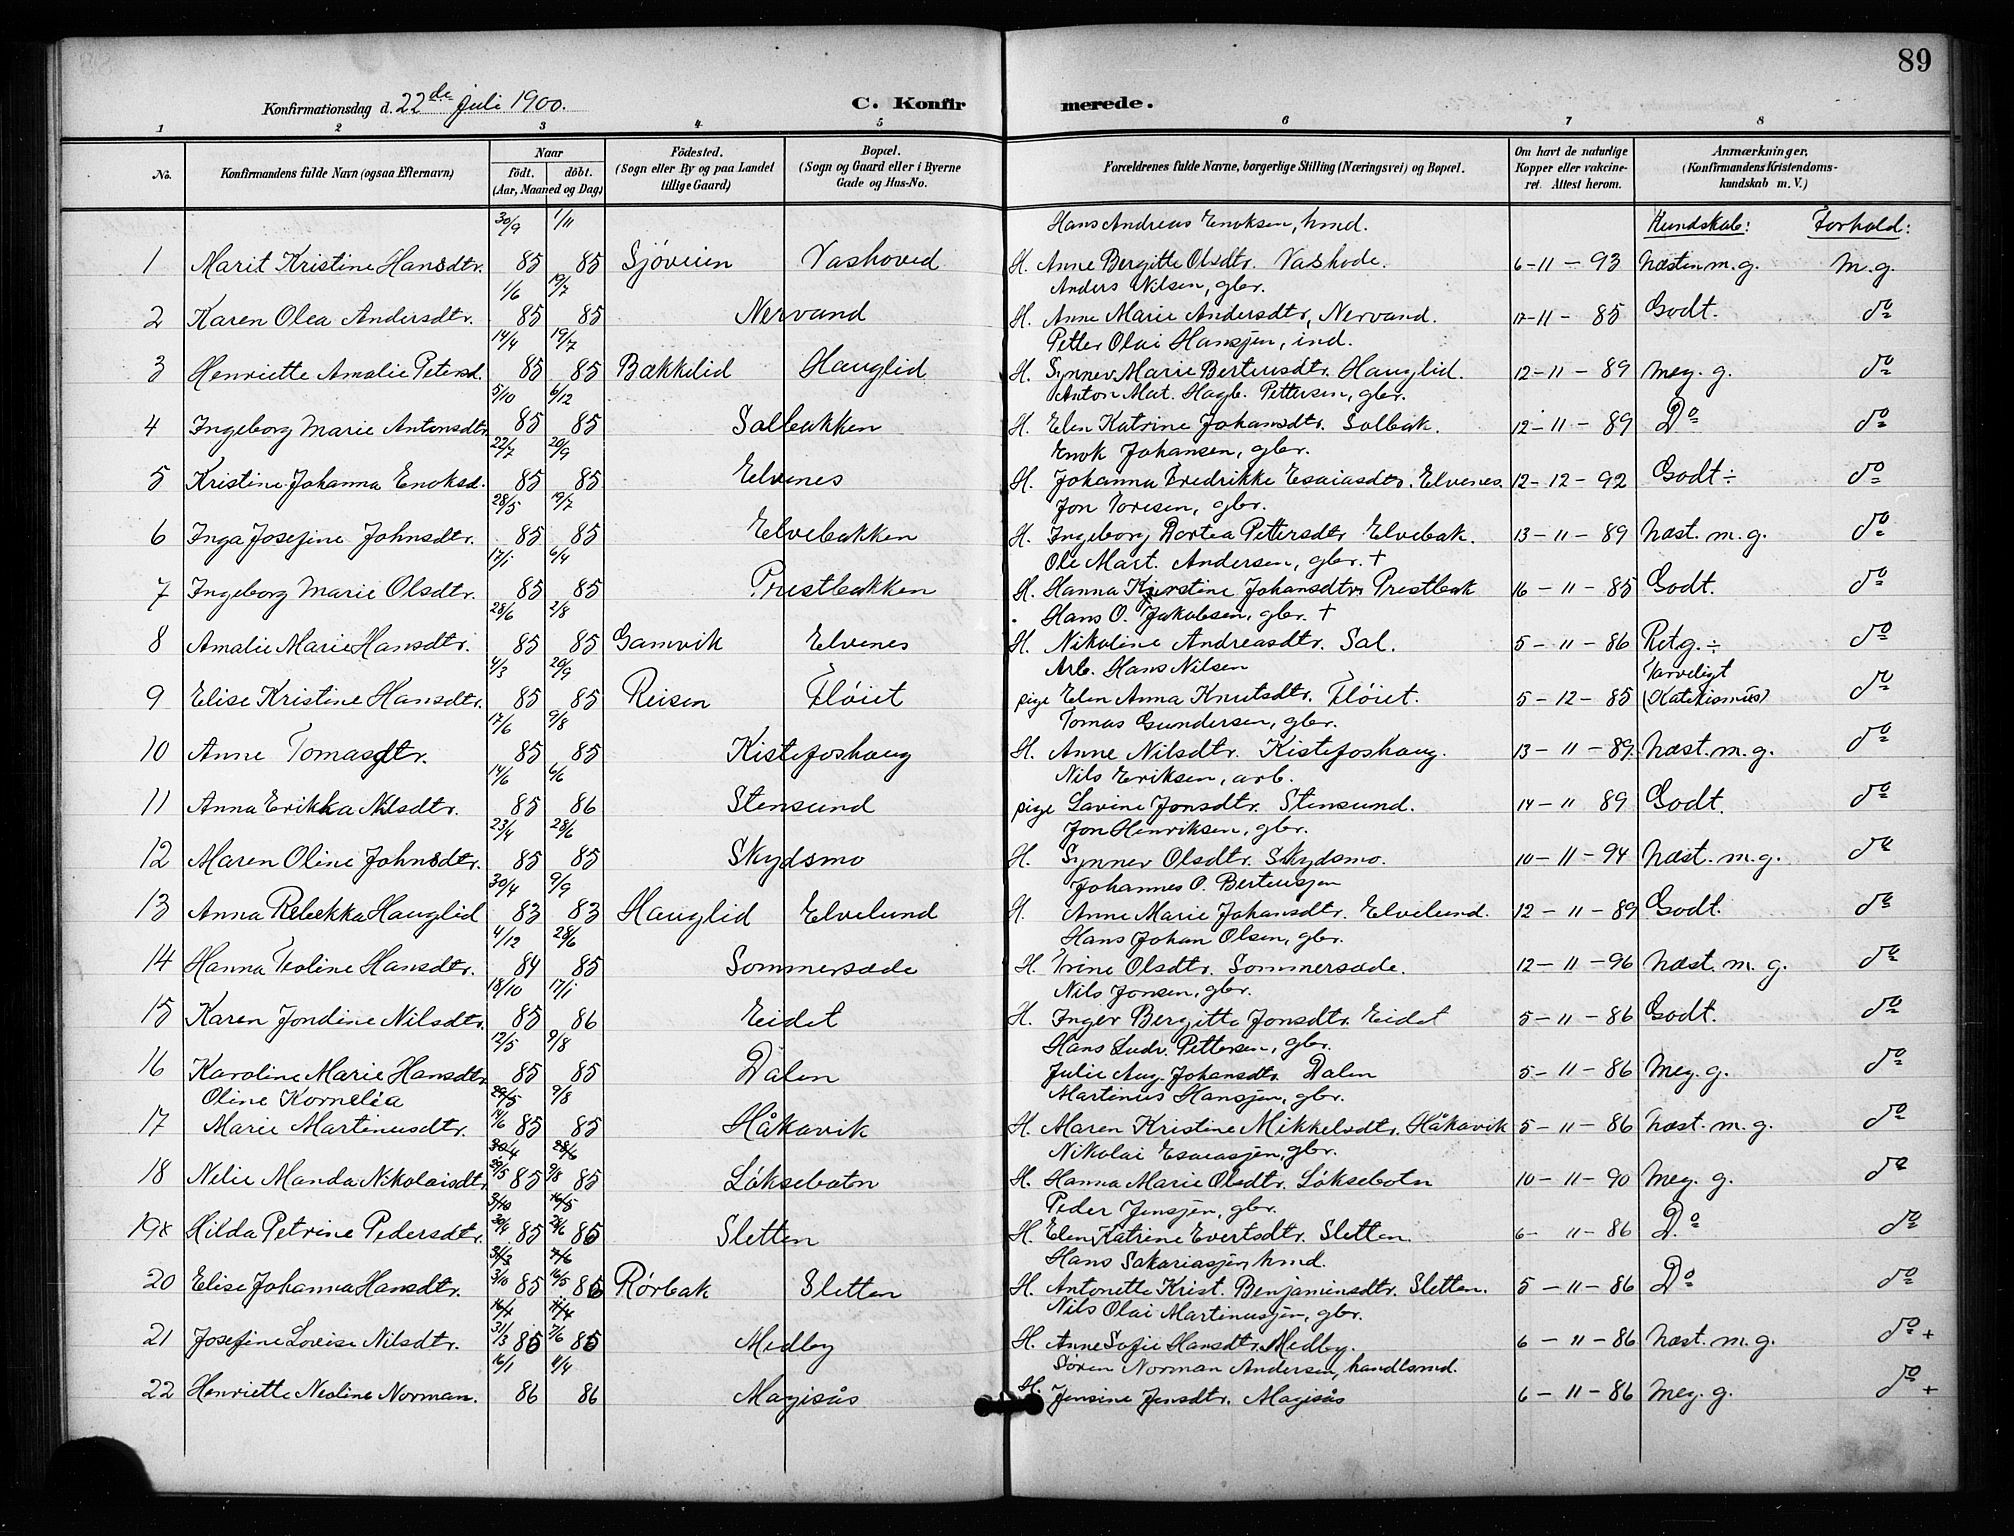 89
Konfirmationsdag d. 22de Juli 1900. C. Konfirmerede.
1 2 3 4 5 6 7 8
No. Konfirmandens fulde Navn (ogsaa Efternavn) Naar født. døbt. (Aar, Maaned og Dag) Fødested. (Sogn eller By og paa Landet tillige Gaard) Bopæl. (Sogn og Gaard eller i Byerne Gade og Hus-No. Forældrenes fulde Navne, borgerlige Stilling (Næringsvei) og Bopæl. Om havt de naturlige Kopper eller vakcineret. Attest herom. Anmærkninger, (Konfirmandens Kristendomskundskab m. V.)
30/9 1/11 Hans Andreas Enoksen, hmd. Kundskab: Forhold:
1 Marit Kristine Hansdtr. 85 85 Sjøveien Vashoved H. Anne Bergitte Olsdtr. Vashode. 6-11-93 Næsten m. g. M. g.
1/6 19/7 Anders Nilsen, gbr.
2 Karen Olea Andersdtr. 85 85 Nervand H. Anne Marie Andersdtr, Nervand. 11-85 Godt. do
14/4 19/7 Petter Olai Hansjen, ind.
3 Henriette Amalie Petersd. 85 85 Bækkelid Hauglid H. Synnev Marie Berteusdtr. Hauglid. 12-11-89 Meg. g. do
5/10 6/12 Anton Mat. Hagb. Pettersen, gbr.
4 Ingeborg Marie Antonsdtr 85 85 Solbakken H. Elen Katrine Johansdtr. Solbak. 12-11-89 Do do
22/7 20/9 Enok Johansen, gbr.
5 Kristine Johanna Enoksd. 85 85 Elvenes H. Johanna Fredrikke Esaiasdtr. Elvenes. 12-12-92 Godt ÷ do
28/5 19/7 Jon Toresen, gbr.
6 Inga Josefine Johnsdtr. 85 85 Elvebakken H. Ingeborg Dortea Pettersdtr Elvebak. 13-11-89 Næst. m. g. do
17/1 6/4 Ole Mart. Andersen, gbr. +
7 Ingeborg Marie Olsdtr. 85 85 Prestbakken H. Hanna Kjerstine Johansdtr Prestbak 16-11-85 Godt. do
28/6 2/8 Hans O. Jakobsen, gbr. +
8 Amalie Marie Hansdtr. 85 85 Gamvik Elvenes H. Nikoline Andreasdtr. Sal. 5-11-86 Retg. ÷ do
4/3 20/9 Arb. Hans Nilsen Tarveligt
9 Elise Kristine Hansdtr. 85 85 Reisen Fløiet pige Elen Anna Knutsdtr. Fløiet. 5-12-85 (Katekismus) do
17/6 9/8 Tomas Gundersen, gbr.
10 Anne Tomasdtr. 85 85 Kistefoshaug H. Anne Nilsdtr. Kistefoshaug. 13-11-89 Næst. m. g. do
14/6 6/6 Nils Eriksen, arb.
11 Anna Erikka Nilsdtr. 85 86 Stensund pige Lavine Jonsdtr. Stensund. 14-11 89 Godt. do
23/4 28/6 Jon Henriksen, gbr.
12 Maren Oline Johnsdtr. 85 85 Skydsmo H. Synnev Olsdtr. Skydsmo. 10-11-94 Næst. m. g. do
30/4 9/9 Johannes O. Berteusjen
13 Anna Rebekka Hauglid 83 83 Hauglid Elvelund H. Anne Marie Johansdtr. Elvelund. 12-11-89 Godt. do
4/12 28/6 Hans Johan Olsen, gbr.
14 Hanna Teoline Hansdtr. 84 85 Sommersæde H. Trine Olsdtr. Sommersæde. 12-11-96 Næst. m. g. do
18/10 17/1 Nils Jonsen, gbr.
15 Karen Jondine Nilsdtr. 85 86 Eidet H. Inger Bergitte Jonsdtr. Eidet 5-11-86 Godt. do
12/5 9/8 Hans Ludv. Pettersen, gbr.
16 Karoline Marie Hansdtr 85 85 Dalen Julie Aug. Johansdtr. Dalen 5-11-86 Meg. g. do
Oline Kornelia 29/5 9/8 Martinus Hansjen, gbr.
17 Marie Martinusdtr. 14/6 85 85 Håkavik H. Maren Kristine Mikkelsdtr. Håkavik 5-11-86 Næst. m. g. do
30/4 28/6 Nikolai Esaiasjen, gbr.
18 Nelie Manda Nikolaisdtr. 29/5 85 9/8 85 Løksebotn H. Hanna Marie Olsdtr. Løksebotn 10-11-90 Meg. g. do
3/10 16/5 Peder Jensjen, gbr.
19x Hilda Petrine Pedersdtr. 30/4 85 28/6 85 Sletten H. Elen Katrine Evertsdtr. Sletten. 6-11-86 Do do
31/3 7/6 Hans Sakariasjen, hmd.
20 Elise Johanna Hansdtr. 3/10 85 16/5 86 Rørbak Sletten H. Antonette Krist. Benjaminsdtr. Sletten. 5-11-86 Do do
16/1 11/4 Nils Olai Martinusjen, gbr.
21 Josefine Lovise Nilsdtr. 31/3 85 7/6 85 Medby H. Anne Sofie Hansdtr. Medby. 6-11-86 Næst. m. g. do +
16/1 11/4 Søren Norman Andersen, handlsmd.
22 Henriette Neoline Norman. 86 86 Magisås H. Jensine Jensdtr. Magisås 6-11-86 Meg. g. do +